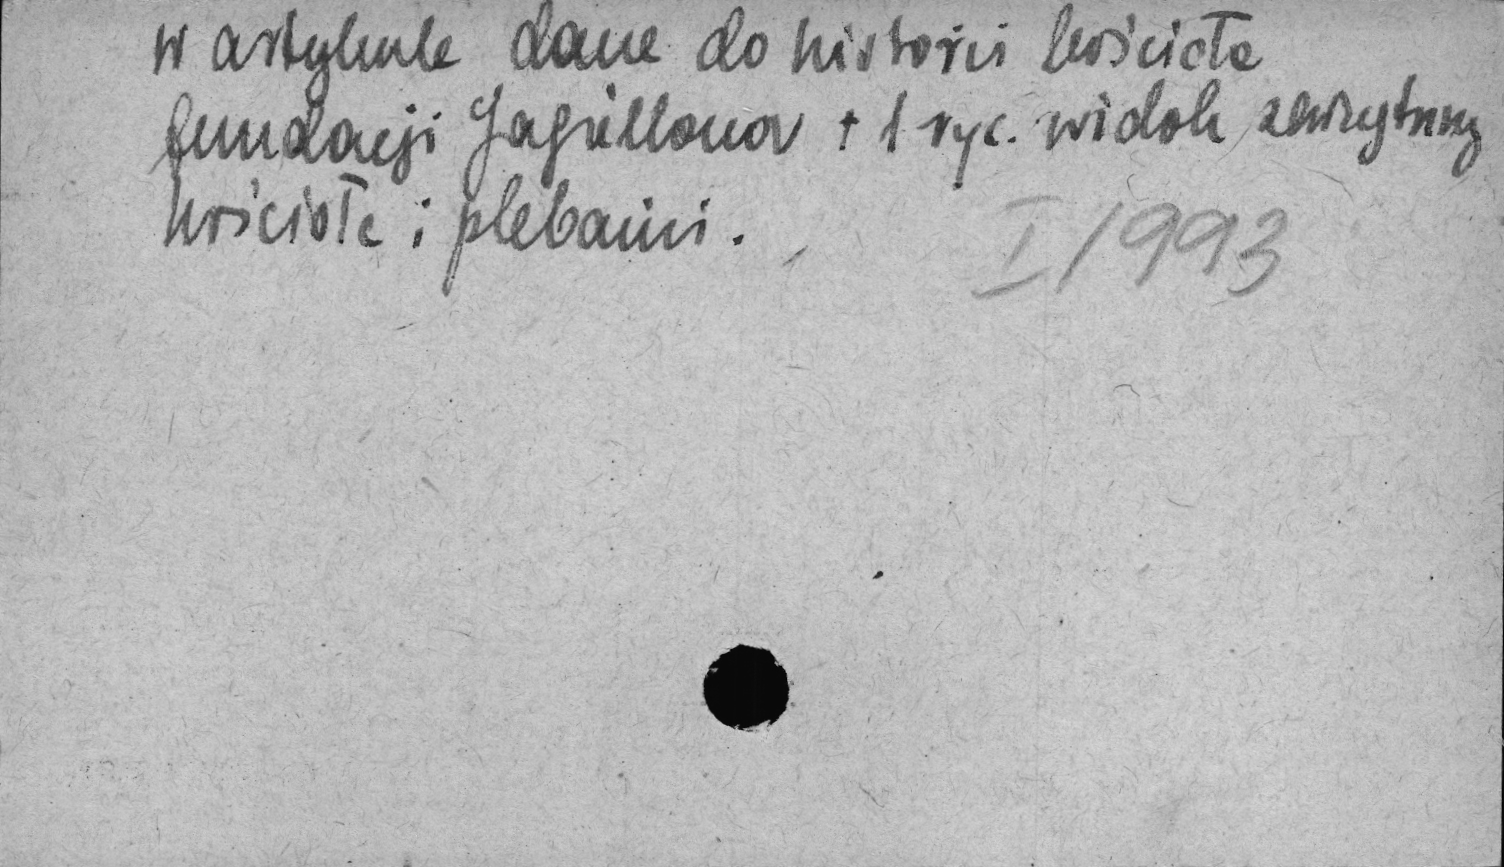 w artykule dane do historii kościoła
fundacji Jagiellonów + 1 ryc. widok zewnętrzny
kościoła i plebanii.
I/993